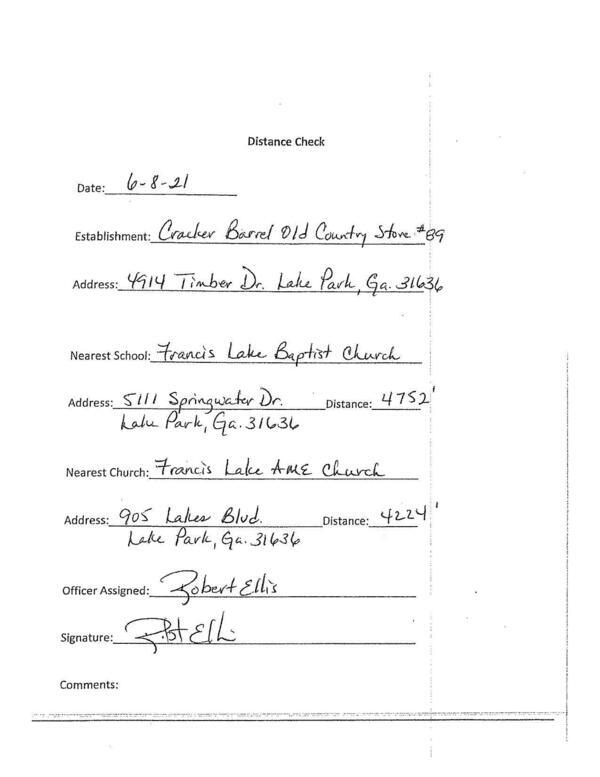 Distance Check
Date: 6-8-21
Establishment: Cracker Barrel Old Country Store #89
Address: 4914 Timber Dr. Lake Park, Ga. 31636
Nearest School: Francis Lake Baptist Church
Address: 5111 Springwater Dr. Distance: 4752'
Lake Park, Ga. 31636
Nearest Church: Francis Lake AME Church
Address: 905 Lakes Blvd. Distance: 4224'
Lake Park, Ga. 31636
Officer Assigned: Robert Ellis
Signature:
Comments: